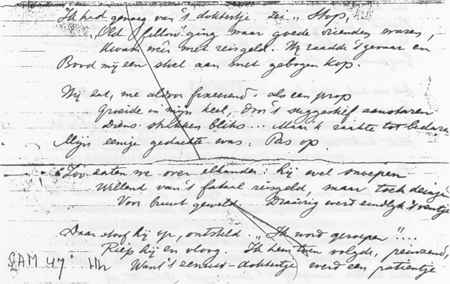 Ik had genoeg van 't doktertje zei „Stop,
„Old fellow" ging maar goede vrienden waren,
Kwam weer met reisgeld. Hij raadde 't gevaar en
Bood mij een stoel aan met gebogen kop.
Hij zat, me aldoor fixeerend als een prop
Groeide in mijn keel, door 't suggestief aanstaren
Diens strakken bliks... Maar ik raakte tot bedaren
Mijn eenige gedachte was: Pas op
Zoo zaten we over elkander: hij wel
Willend van 't fataal reisgeld, maar toch
Voor bruut geweld. Draaierig werd eindelijk 't
Daar stoof hij op, ontsteld. „Ik word geroepen"....
Riep hij en vloog. Ik hem toen volgde,
Want 't zenuw-doktertje werd een patientje
SAM 47